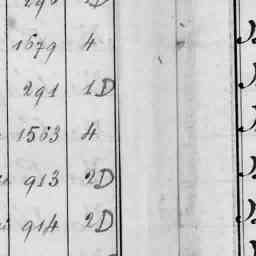 1679 4
291 1D
1563 4
913 2D
914 2D